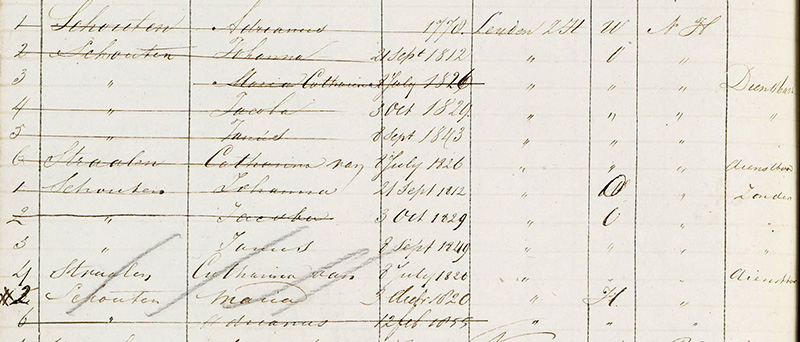 1 Schouten Adrianus 1770. Leyden Z H W N H
2 Schouten Johanna 21 Sept 1812 " O "
3 " Maria Catharina 8 July 1826 " " " Dienstb
4 " Jacoba 3 Oct 1829 " " " "
5 " Janus 8 Sept 1843 " " "
6 Straalen Catharina van 8 July 1826 " " " dienstb
1 Schouten Johanna 21 Sept 1812 " O " Zonder
2 " Jacoba 3 Oct 1829 " O "
3 " Janus 8 Sept 1849 " " " "
4 Straalen Catharina van 8 July 1826 " " " dienstb
2 Schouten Maria 3 decbr 1820 " H "
6 " Adrianus 12 feb 1855 " " "